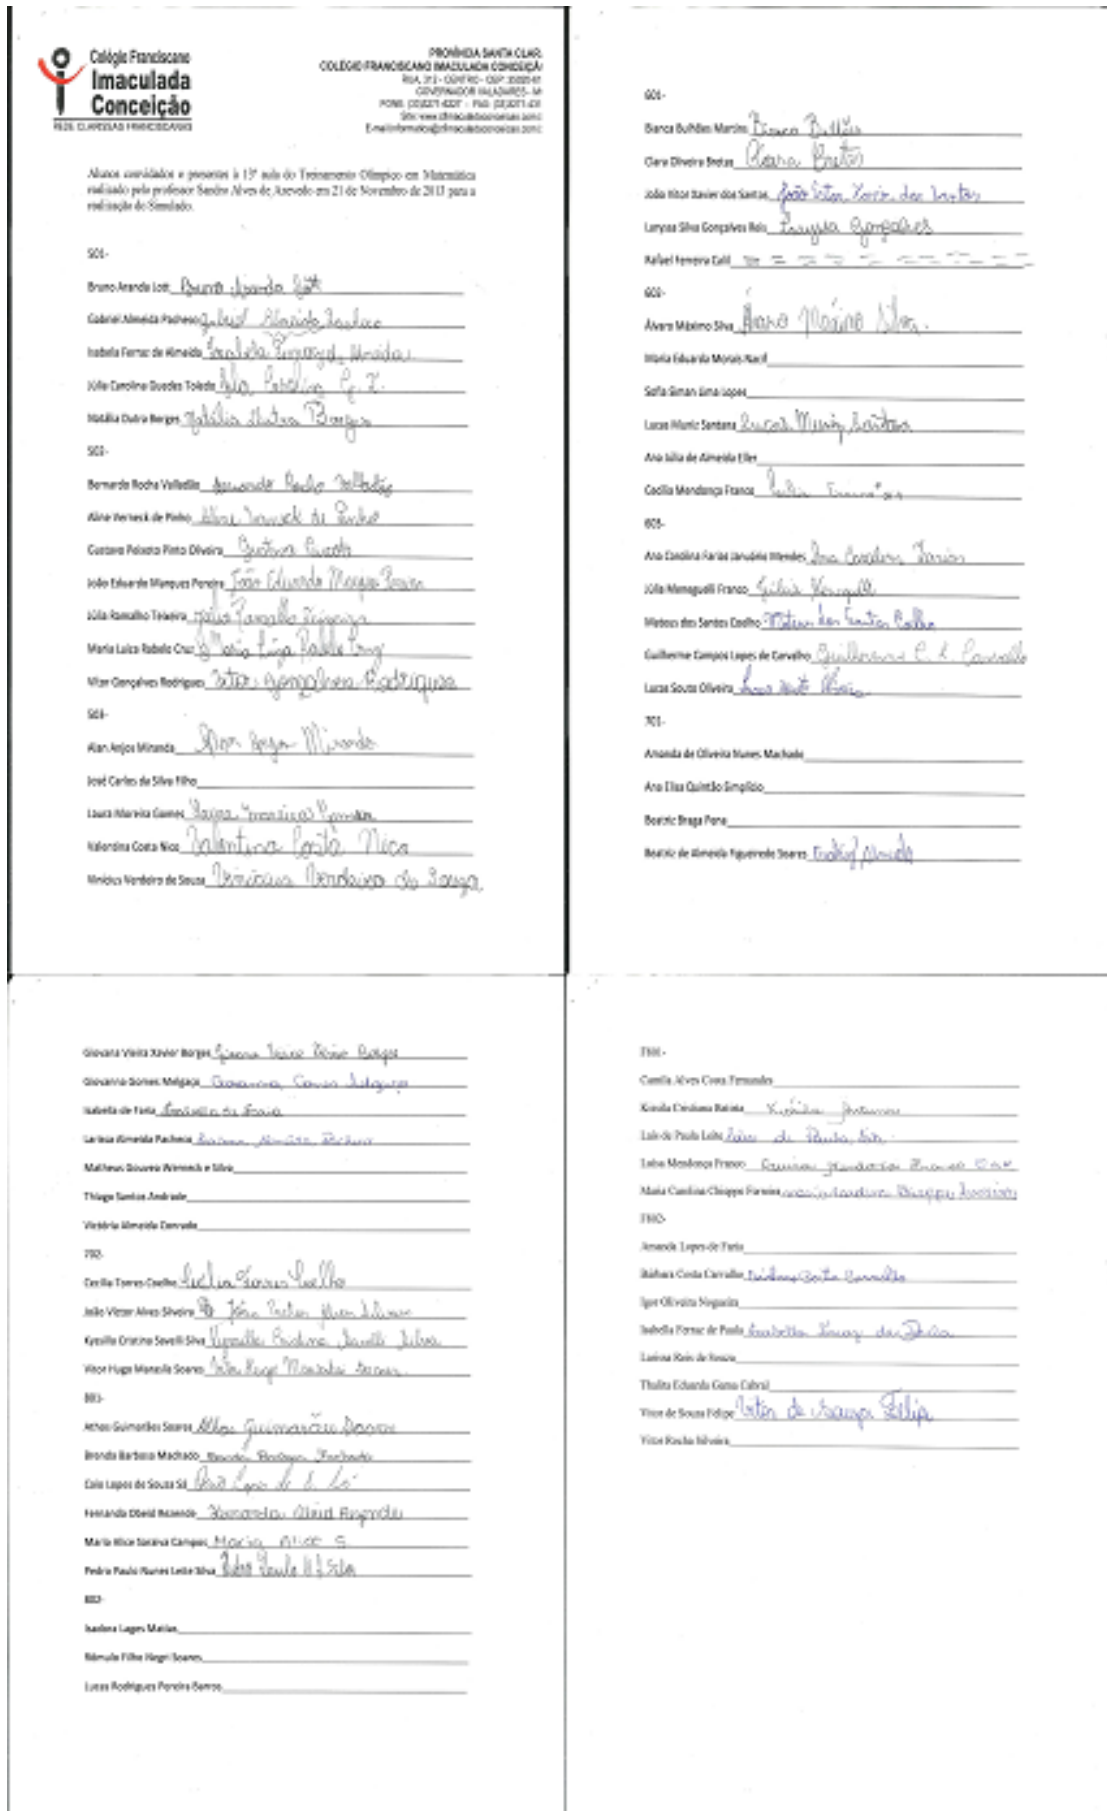 Colégio Franciscano
Imaculada
Conceição
REDE CLARISSAS FRANCISCANAS
PROVÍNCIA SANTA CLAR
COLÉGIO FRANCISCANO IMACULADA CONCEIÇÃ
GOVERNADOR VALADARES - M
Alunos convidados e presentes à 13ª aula do Treinamento Olímpico em Matemática
realizado pelo professor Sandro Alves de Azevedo em 21 de Novembro de 2013 para a
realização do Simulado.
501-
Bruno Aranda Lott Bruno Aranda Lott
Gabriel Almeida Pacheco Gabriel Almeida Pacheco
Isabela Ferraz de Almeida Isabela Ferraz de Almeida
Júlia Carolina Guedes Toledo Júlia Carolina G. T.
Natália Dutra Borges Natália Dutra Borges
502-
Bernardo Rocha Valladão Bernardo Rocha Valladão
Aline Verneck de Pinho Aline Verneck de Pinho
Gustavo Peixoto Pinto Oliveira Gustavo Peixoto
João Eduardo Marques Pereira João Eduardo Marques Pereira
Júlia Ramalho Teixeira Júlia Ramalho Teixeira
Maria Luiza Rabelo Cruz Maria Luiza Rabelo Cruz
Vitor Gonçalves Rodrigues Vitor Gonçalves Rodrigues
503-
Alan Anjos Miranda Alan Anjos Miranda
José Carlos da Silva Filho
Laura Moreira Gomes Laura Moreira Gomes
Valentina Costa Nico Valentina Costa Nico
Vinícius Verdeiro de Souza Vinícius Verdeiro de Souza
601-
Bianca Bulhões Martins Bianca Bulhões
Clara Oliveira Bretas Clara Bretas
João Vitor Xavier dos Santos João Vitor Xavier dos Santos
Laryssa Silva Gonçalves Reis Laryssa Gonçalves
Rafael Ferreira Calil
602-
Álvaro Máximo Silva Álvaro Máximo Silva.
Maria Eduarda Morais Nacif
Sofia Siman Lima Lopes
Lucas Muniz Santana Lucas Muniz Santana
Ana Júlia de Almeida Eller
Cecília Mendonça Franco Cecília
603-
Ana Carolina Farias Januário Mendes Ana Carolina Farias
Júlia Meneguelli Franco Júlia Meneguelli
Mateus dos Santos Coelho Mateus dos Santos Coelho
Guilherme Campos Lopes de Carvalho Guilherme C. L. Carvalho
Lucas Souto Oliveira Lucas Souto Oliveira
701-
Amanda de Oliveira Nunes Machado
Ana Elisa Quintão Simplício
Beatriz Braga Pena
Beatriz de Almeida Figueiredo Soares Beatriz Almeida
Giovana Vieira Xavier Borges Giovana Vieira Xavier Borges
Giovanna Gomes Melgaço Giovanna Gomes Melgaço
Isabella de Faria Isabella de Faria
Larissa Almeida Pacheco Larissa Almeida Pacheco
Matheus Gouvea Werneck e Silva
Thiago Santos Andrade
Victória Almeida Conrado
702-
Cecilia Torres Coelho Cecilia Torres Coelho
João Victor Alves Silveira João Victor Alves Silveira
Kyssilla Cristina Savelli Silva Kyssilla Cristina Savelli Silva
Vitor Hugo Mansila Soares Vitor Hugo Mansila Soares
801-
Athos Guimarães Soares Athos Guimarães Soares
Brenda Barbosa Machado Brenda Barbosa Machado
Caio Lopes de Souza Sá Caio Lopes de S. Sá
Fernanda Obeid Rezende Fernanda Obeid Rezende
Maria Alice Saraiva Campos Maria Alice S.
Pedro Paulo Nunes Leite Silva Pedro Paulo N L Silva
802-
Isadora Lages Matias
Rômulo Filho Negri Soares
Lucas Rodrigues Pereira Barros
Camila Alves Costa Fernandes
Cristiana Batista
Laís de Paula Leite Laís de Paula Leite
Luísa Mendonça Franco Luísa Mendonça Franco
Maria Carolina Chiappe Ferreira Maria Carolina Chiappe Ferreira
Amanda Lopes de Faria
Bárbara Costa Carvalho Bárbara Costa Carvalho
Igor Oliveira Nogueira
Isabella Ferraz de Paula Isabella Ferraz de Paula
Larissa Reis de Souza
Thalita Eduarda Gama Cabral
Vitor de Souza Felipe Vitor de Souza Fellipe
Vitor Rocha Silveira